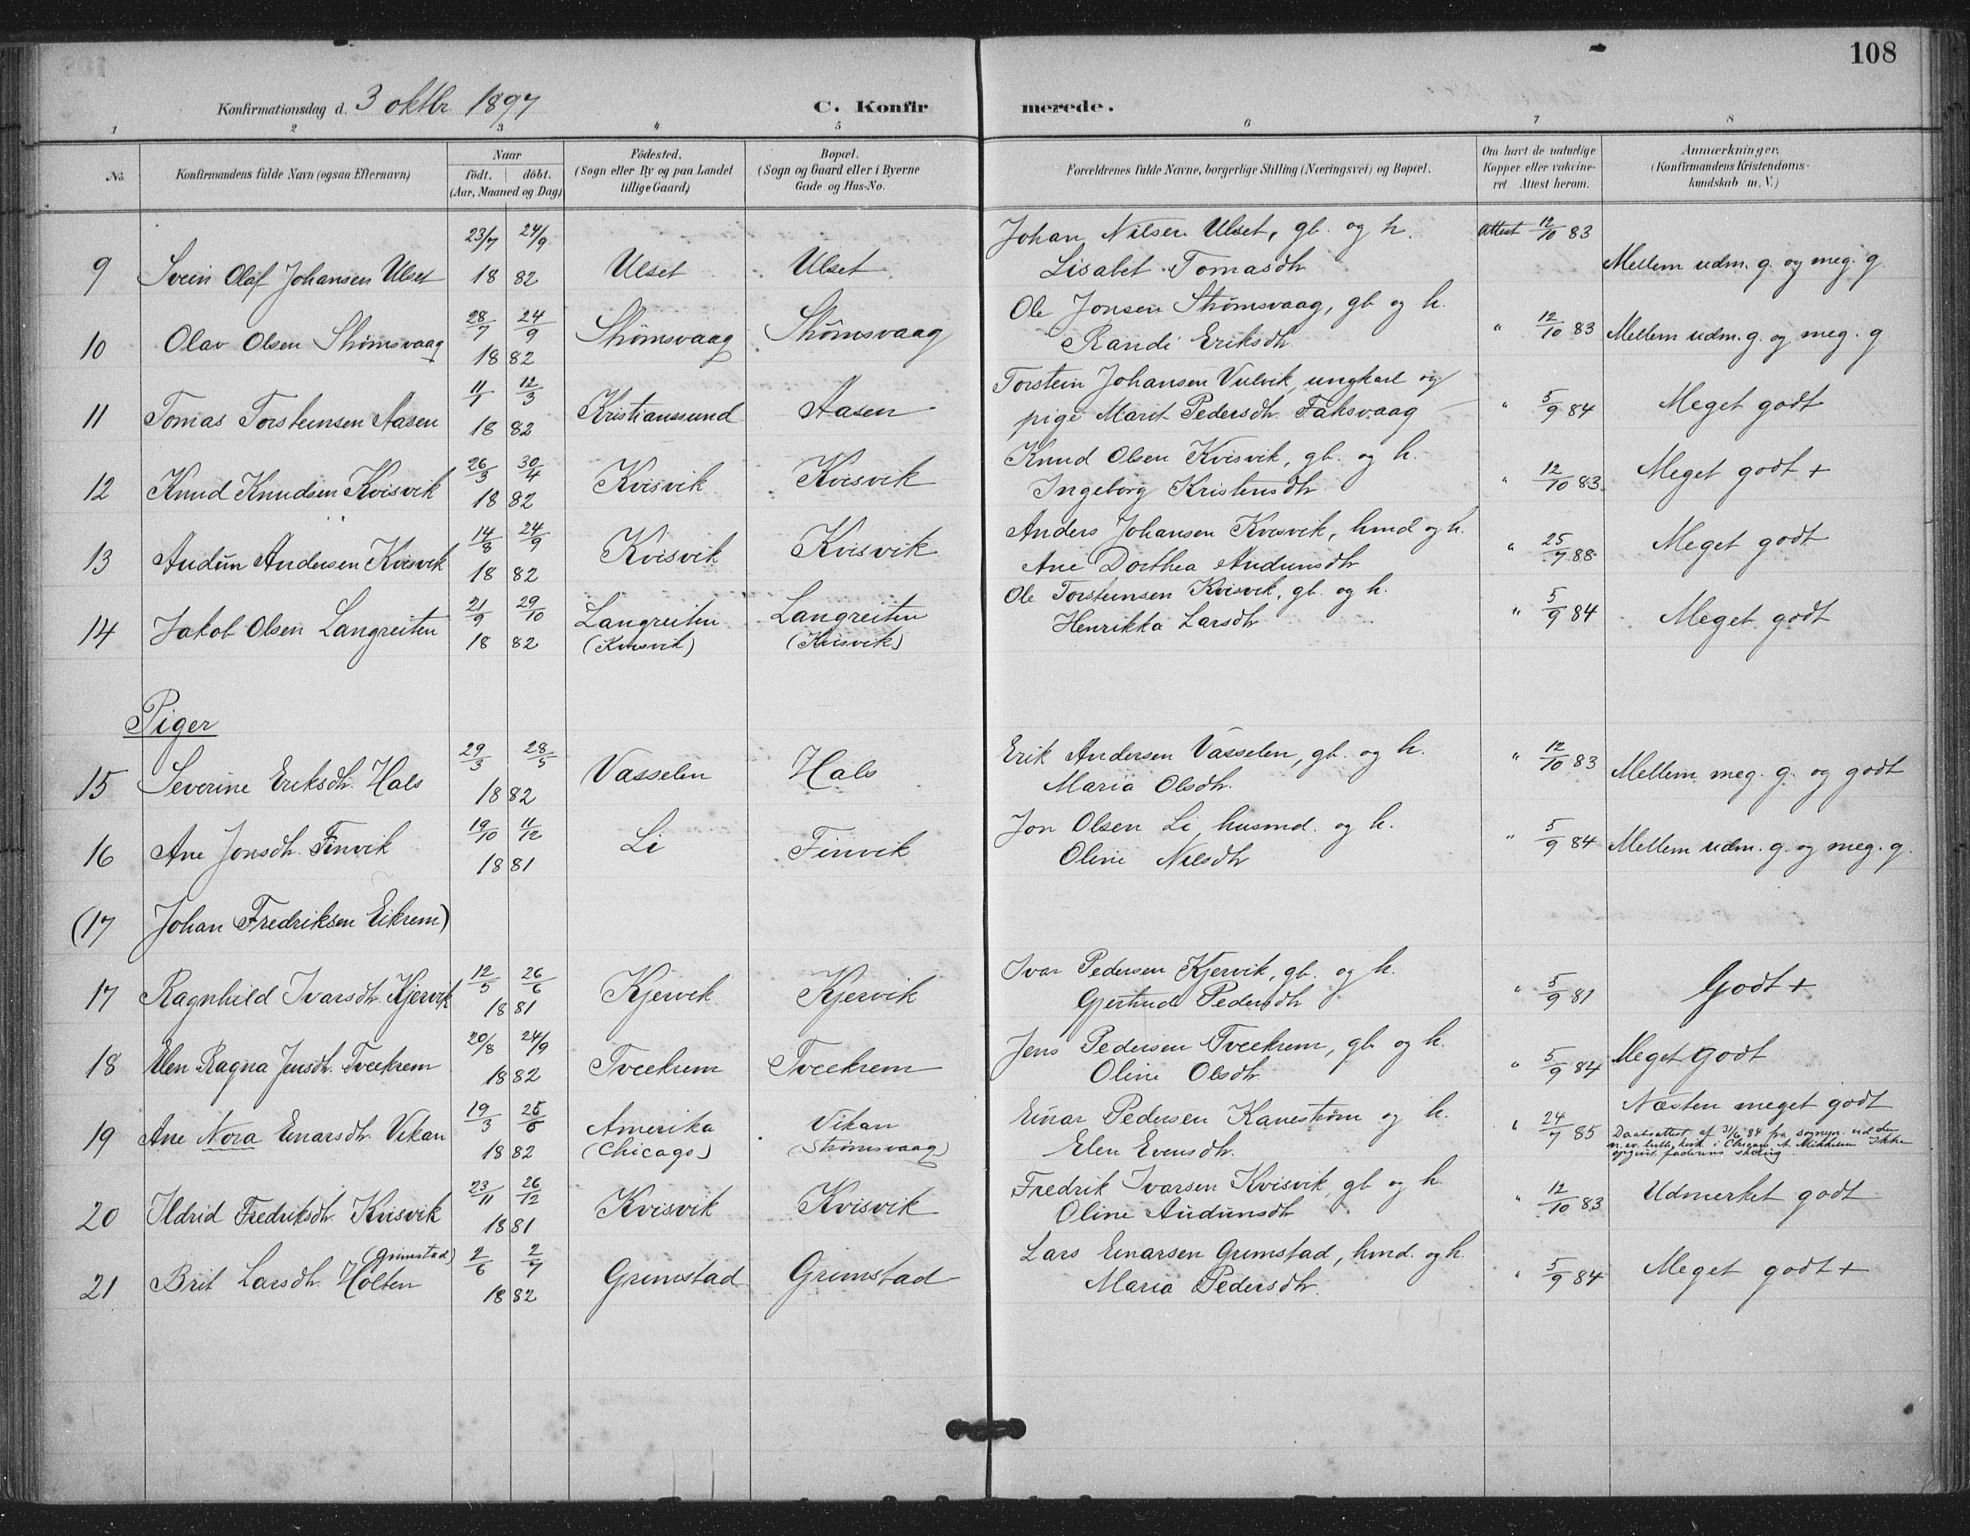 108
Konfirmationsdag d. 3 oktbr 1897 C. Konfir merede.
1 2 3 4 5 6 7 8
No. Konfirmandens fulde Navn (ogsaa Efternavn) Naar født. døbt. (Aar, Maaned og Dag) Födested. (Sogn eller By og paa Landet tillige Gaard) Bopæl. (Sogn og Gaard eller i Byerne Gade og Hus-No. Forældrenes fulde Navne, borgerlige Stilling (Næringsvei) og Bopæl. Om havt de naturlige Kopper eller vaccineret. Attest herom. Anmærkninger. (Konfirmandens Kristendomskundskab m. V.)
23/7 24/9 Johan Nilsen Ulset, gb. og h. Attest 12/10 83
9 Svein Olaf Johansen Ulset 18 82 Ulset Ulset Lisabet Tomasdtr Mellem udm. g. og meg. g
28/7 24/9 Ole Jonsen Strømsvaag, gb og h.
10 Olav Olsen Strømsvaag 18 82 Strømsvaag Strømsvaag Randi Eriksdtr " 12/10 83 Mellem udm. g. og meg. g
11/1 12/3 Torstein Johansen Vulvik, ungkarl og
11 Tomas Torsteinsen Aasen 18 82 Kristianssund Aasen pige Marit Pedersdtr Faksvaag " 5/9 84 Meget godt
26/3 30/4 Knud Olsen Kvisvik, gb. og h.
12 Knud Knudsen Kvisvik 18 82 Kvisvik Kvisvik Ingeborg Kristensdtr " 12/10 83 Meget godt +
14/8 24/9 Anders Johansen Kvisvik, hmd og h.
13 Audun Andersen Kvisvik 18 82 Kvisvik Kvisvik Ane Dorthea Audunsdtr " 25/7 88 Meget godt
21/9 29/10 Ole Torsteinsen Kvisvik, gb. og h.
14 Jakob Olsen Langreiten 18 82 Langreiten (Kvisvik) Langreiten (Kvisvik) Henrikka Larsdtr " 5/9 84 Meget godt
Piger
29/3 28/5 Erik Andersen Vasselen, gb. og h.
15 Severine Eriksdtr. Hals 18 82 Vasselen Hals Maria Olsdtr. " 12/10 83 Mellem meg. g. og godt
19/10 11/12 Jon Olsen Li, husmd. og h.
16 Ane Jonsdtr. Finvik 18 81 Li Finvik Oline Nilsdtr " 5/9 84 Mellem udm. g. og meg. g.
(17 Johan Fredriksen Eikrem)
12/5 26/6 Ivar Pedersen Kjervik, gb. og h.
17 Ragnhild Ivarsdtr. Kjervik 18 81 Kjervik Kjervik Gjertrude Pedersdtr " 5/9 81 Godt +
20/8 24/9 Jens Pedersen Tveekrem, gb og h.
18 Elen Ragna Jensdtr. Tveekrem 18 82 Tveekrem Tveekrem Oline Olsdtr " 5/9 84 Meget godt
19/3 Einar Pedersen Kanestrøm og h. Næsten meget godt
19 Ane Nora Einarsdtr. Vikan 18 82 Amerika (Chicago) Vikan (Strømsvaag) Elen Evensdtr. " 24/7 85 Daabsattest af 84 fra
23/11 26/12 Fredrik Ivarsen Kvisvik, gb og h.
20 Ildrid Fredriksdtr. Kvisvik 18 81 Kvisvik Kvisvik Oline Audunsdtr " 12/10 83 Udmerket godt
(Grimstad) 2/6 2/7 Lars Einarsen Grimstad, hmd. og h.
21 Brit Larsdtr. Holten 18 82 Grimstad Grimstad Maria Pedersdtr. " 5/9 84 Meget godt +